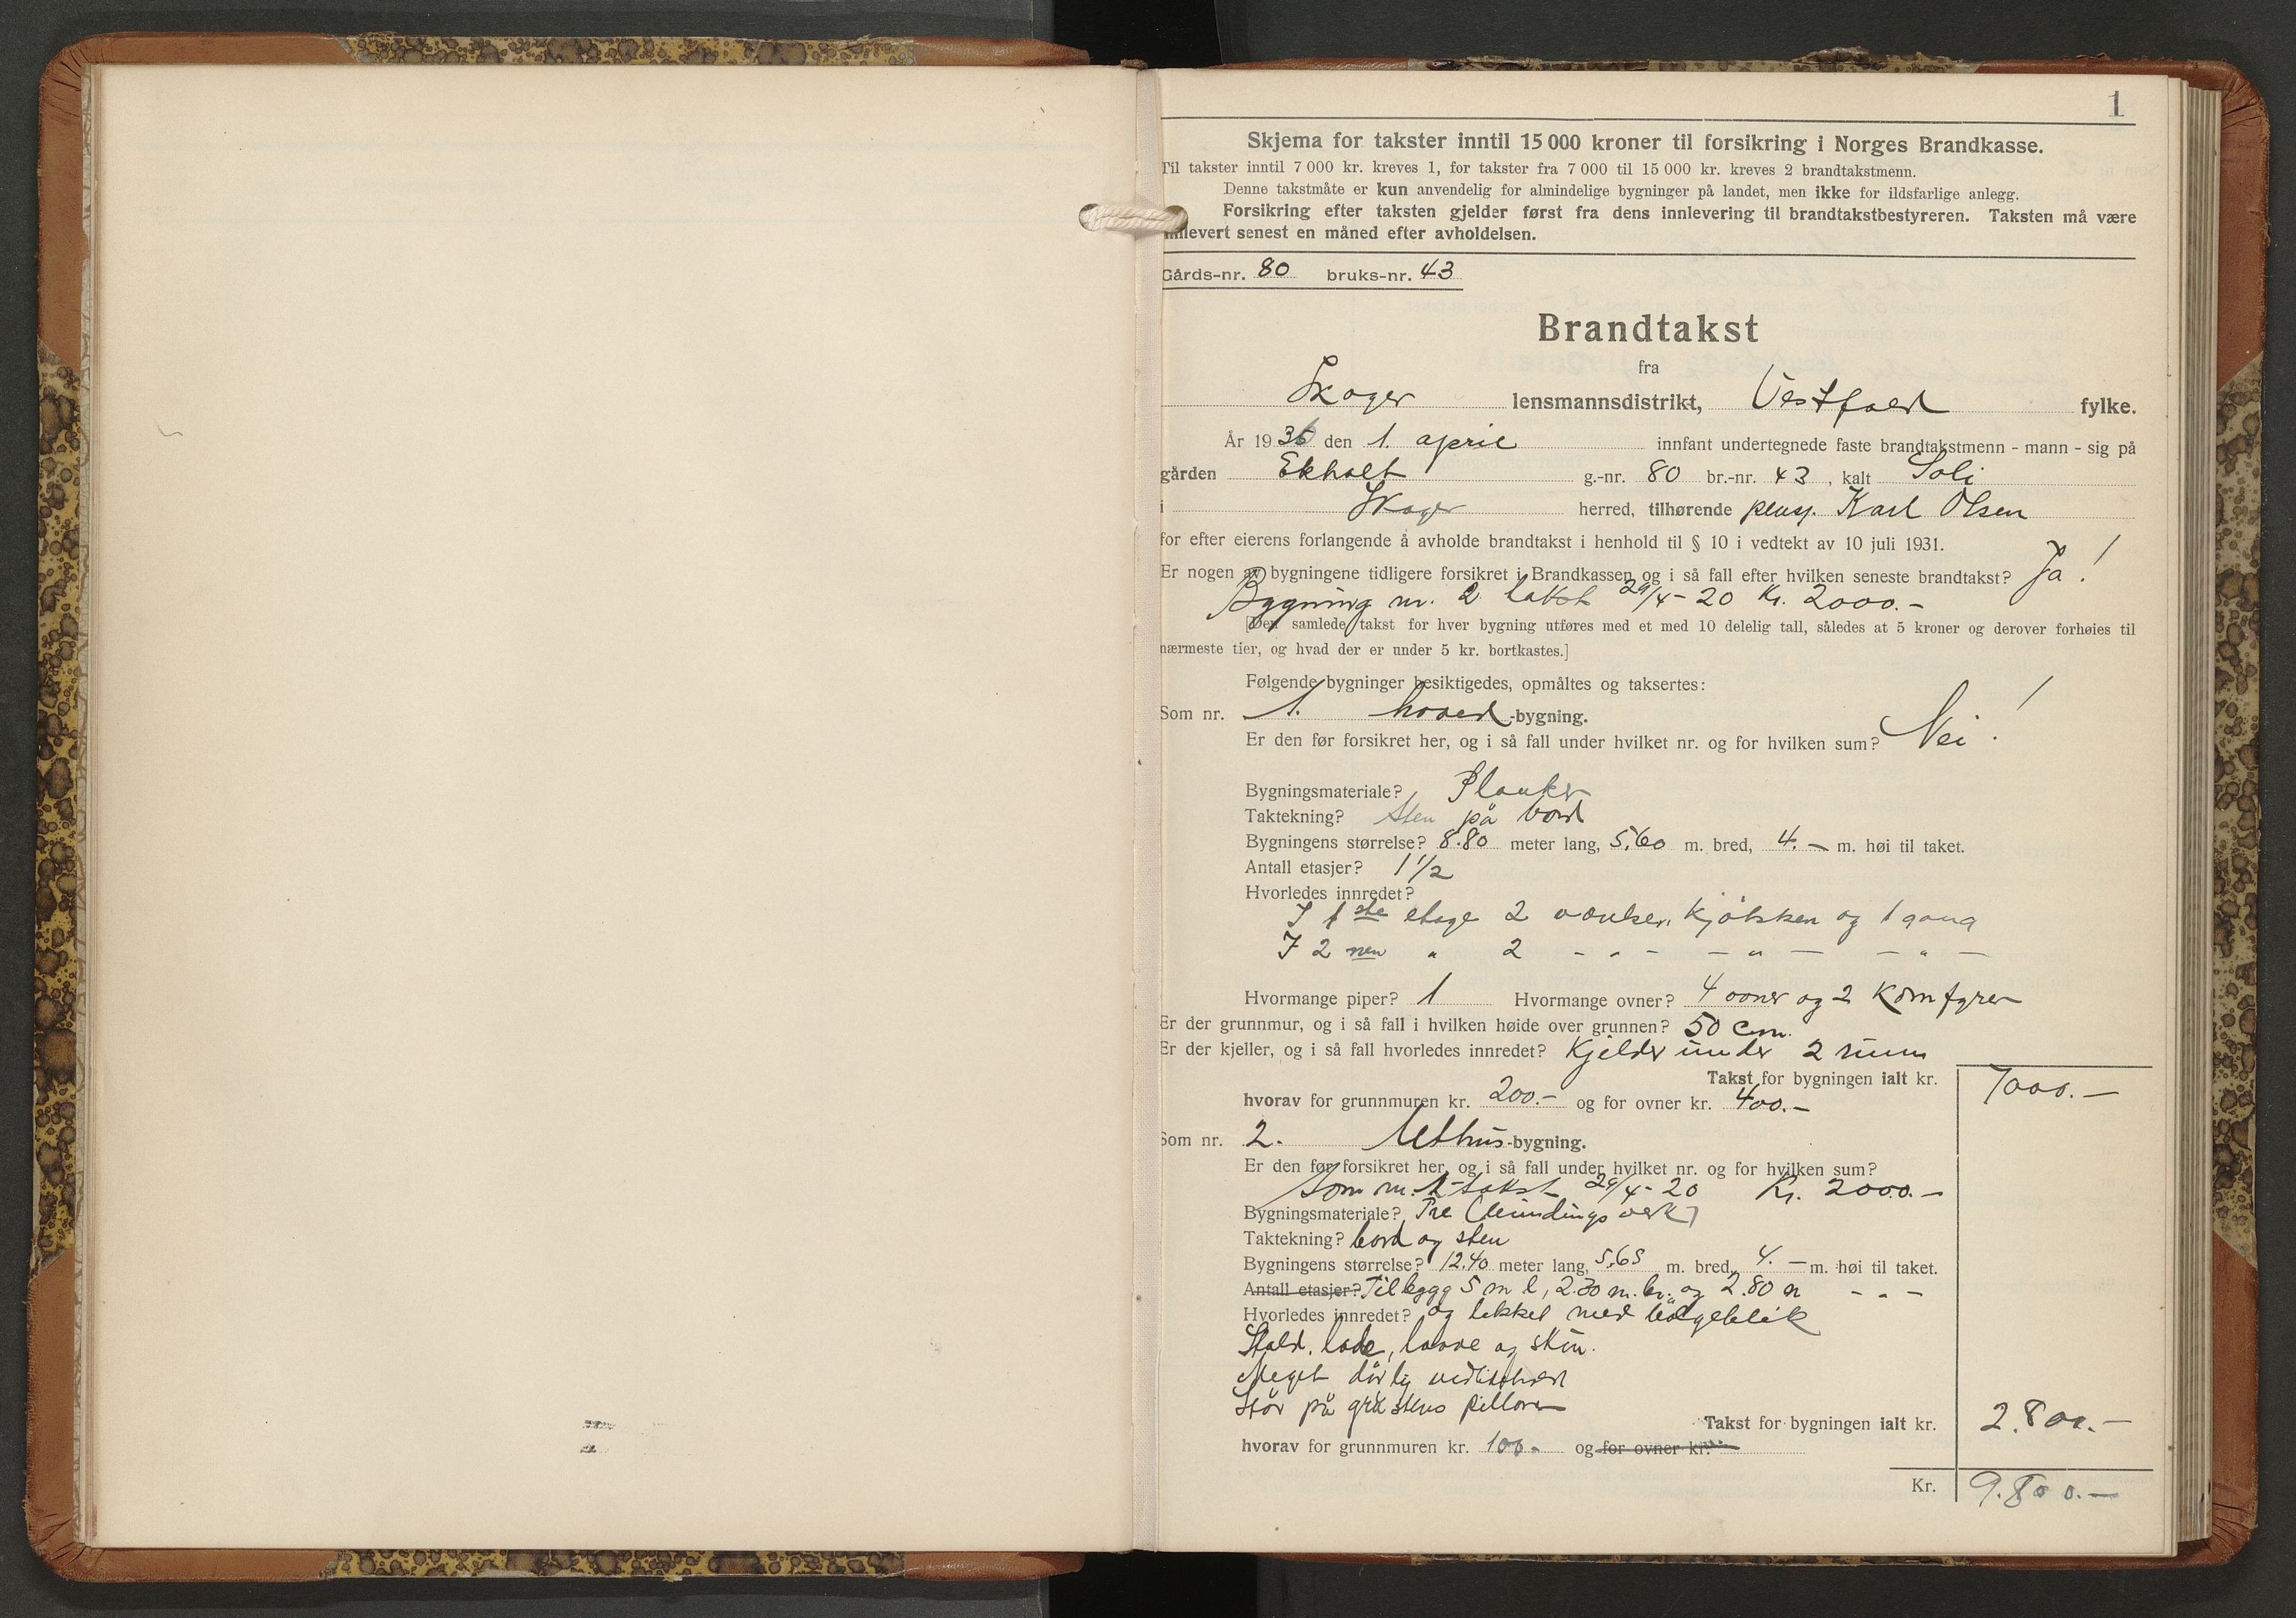 1
Skjema for takster inntil 15 000 kroner til forsikring i Norges Brandkasse.
Til takster inntil 7 000 kr. kreves 1, for takster fra 7 000 til 15 000 kr. kreves 2 brandtakstmenn.
Denne takstmåte er kun anvendelig for almindelige bygninger på landet, men ikke for ildsfarlige anlegg.
Forsikring efter taksten gjelder først fra dens innlevering til brandtakstbestyreren. Taksten må være
innlevert senest en måned efter avholdelsen.
Gårds-nr. 80 bruks-nr. 43
Brandtakst
fra
Skoger lensmannsdistrikt, Vestfold fylke.
År 1936 den 1. april innfant undertegnede faste brandtakstmenn - mann - sig på
gården Ekholt g.-nr. 80 br.-nr. 43, kalt Soli
i Skoger herred, tilhørende pensj. Karl Olsen
for efter eierens forlangende å avholde brandtakst i henhold til § 10 i vedtekt av 10 juli 1931.
Er nogen av bygningene tidligere forsikret i Brandkassen og i så fall efter hvilken seneste brandtakst? Ja!
Bygning nr. 2 takst 29/4-20 Kr. 2000.-
[Den samlede takst for hver bygning utføres med et med 10 delelig tall, således at 5 kroner og derover forhøies til
nærmeste tier, og hvad der er under 5 kr. bortkastes.]
Følgende bygninger besiktigedes, opmåltes og taksertes:
Som nr. 1. hoved-bygning.
Er den før forsikret her, og i så fall under hvilket nr. og for hvilken sum? Nei!
Bygningsmateriale? Planker
Taktekning? Sten på bord
Bygningens størrelse? 8.80 meter lang, 5,60 m. bred, 4.- m. høi til taket.
Antall etasjer? 1 1/2
Hvorledes innredet?
I 1ste etage 2 værelser, kjøkken og 1 gang
I 2nen " 2 - " - - " - - " -
Hvormange piper? 1 Hvormange ovner? 4 ovner og 2 komfyrer
Er der grunnmur, og i så fall i hvilken høide over grunnen? 50 cm.
Er der kjeller, og i så fall hvorledes innredet? Kjelder under 2 rum
Takst for bygningen ialt kr. 7000.-
hvorav for grunnmuren kr. 200.- og for ovner kr. 400.-
Som nr. 2. Uthus-bygning.
Er den før forsikret her, og i så fall under hvilket nr. og for hvilken sum?
Som nr. 1 takst 29/4-20 Kr. 2000.-
Bygningsmateriale? Tre (bindingsverk)
Taktekning? bord og sten
Bygningens størrelse? 12.40 meter lang, 5,65 m. bred, 4.- m. høi til taket.
Antall etasjer? Tilbygg 5 m l, 2.70 m. br. og 2.80 m - " -
Hvorledes innredet? og tekket med bølgeblik
Stald, lade, laave og skur.
Meget dårlig vedlikehold
Står på gråstens pillarer
Takst for bygningen ialt kr. 2.800.-
hvorav for grunnmuren kr. 100.- og for ovner kr.
Kr. 9.800.-